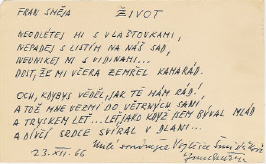 FRAN SMĚJA ŽIVOT
NEODLÉTEJ MI S VLAŠTOVKAMI,
NEPADEJ S LISTÍM NA NÁŠ SAD,
NEUNIKEJ MI S VIDINAMI...
DOST, ŽE MI VČERA ZEMŘEL KAMARÁD.
OCH, KDYBYS VĚDĚL, JAK TĚ MÁM RÁD!
A TOŽ MNE VEZMI DO VĚTRNÝCH SANÍ
A TRYSKEM LEŤ... LEŤ, JAKO KDYŽ JSEM BÝVAL MLÁD
A DÍVČÍ SRDCE SVÍRAL V DLANI...
23. XII. 66